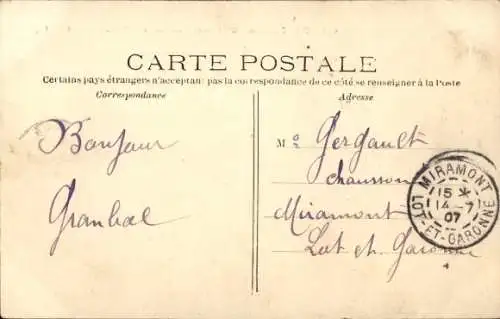 CARTE POSTALE
Certains pays étrangers n'acceptant pas la correspondance de ce côté, se renseigner à la Poste
Correspondance
Adresse
Bonjour
Granbal
M
Gergault
chausson
Miramont
Lot et Garonne
MIRAMONT
15 *
14-7
07
LOT-ET-GARONNE